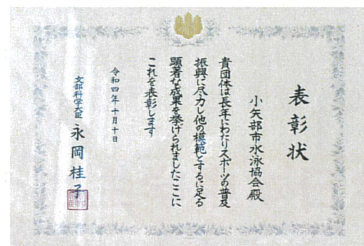 表彰状
小矢部市水泳協会殿
貴団体は長年にわたりスポーツの普及
振興に尽力し他の模範とするに足る
顕著な成果を挙げられましたここに
これを表彰します
令和四年十月十日
文部科学大臣 永岡桂子